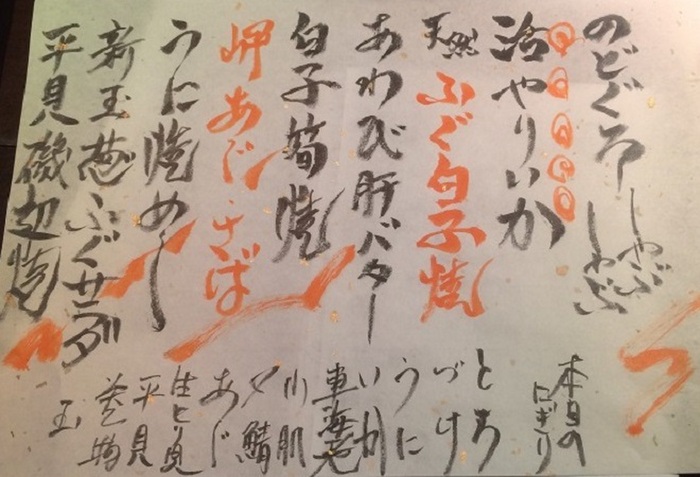 のどぐろしゃぶしゃぶ
活やりいか
天然ふぐ白子焼
あわび肝バター
白子筍焼
岬あじ・さば
うに焼めし
新玉葱ふぐサラダ
平貝磯辺焼
本日のにぎり
とろ
づけ
うに
いか
車海老
小肌
〆鯖
あじ
生とり貝
平貝
巻物
玉